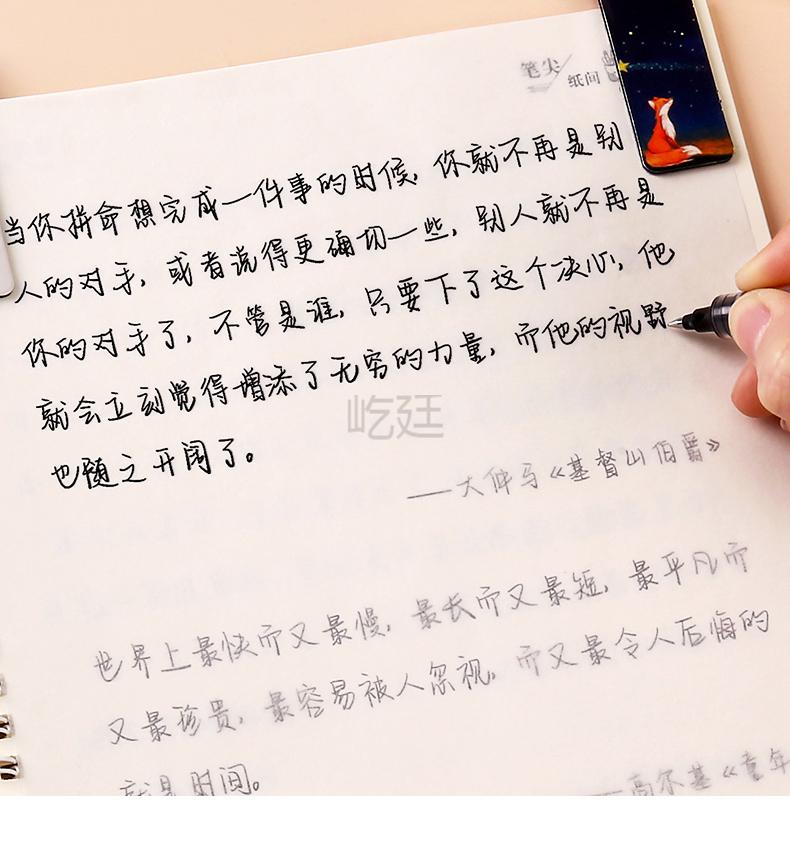 笔尖
纸间
当你拼命想完成一件事的时候，你就不再是别
人的对手，或者说得更确切一些，别人就不再是
你的对手了，不管是谁，只要下了这个决心，他
就会立刻觉得增添了无穷的力量，而他的视野
也随之开阔了。
屹廷
——大仲马《基督山伯爵》
世界上最快而又最慢，最长而又最短，最平凡而
又最珍贵，最容易被人忽视，而又最令人后悔的
就是时间。
——高尔基《童年